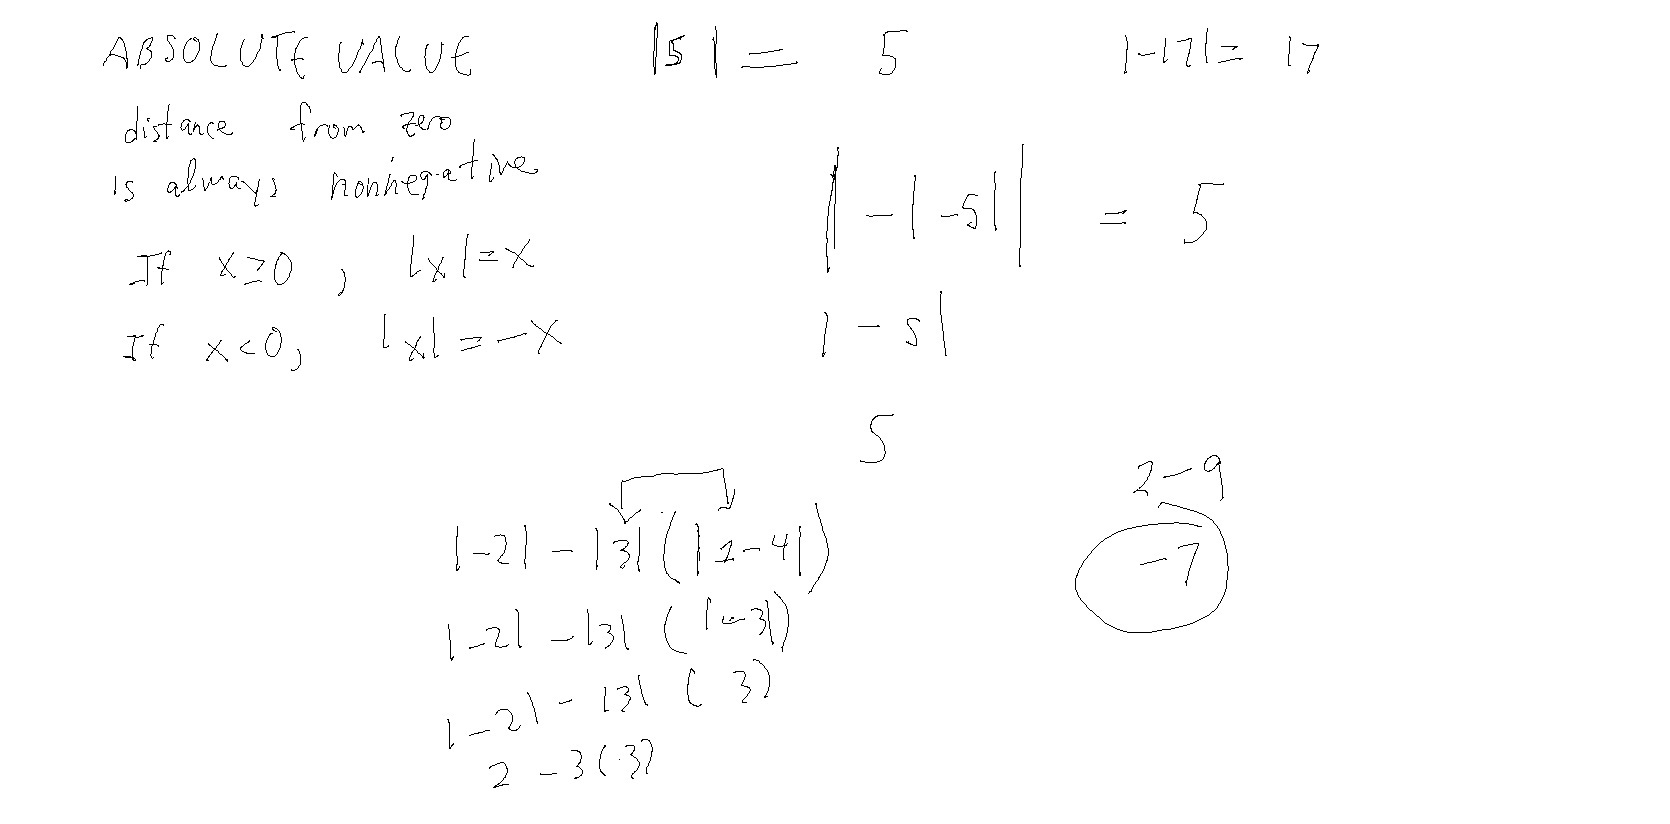 ABSOLUTE VALUE
|5| = 5
|-17| = 17
distance from zero
is always nonnegative
If x≥0, |x|=x
If x<0, |x|=-x
|-|-5|| = 5
|-5|
5
|-2| - |3|(|1-4|)
|-2| - |3| (|-3|)
|-2| - |3| (3)
2 - 3(3)
2-9
-7